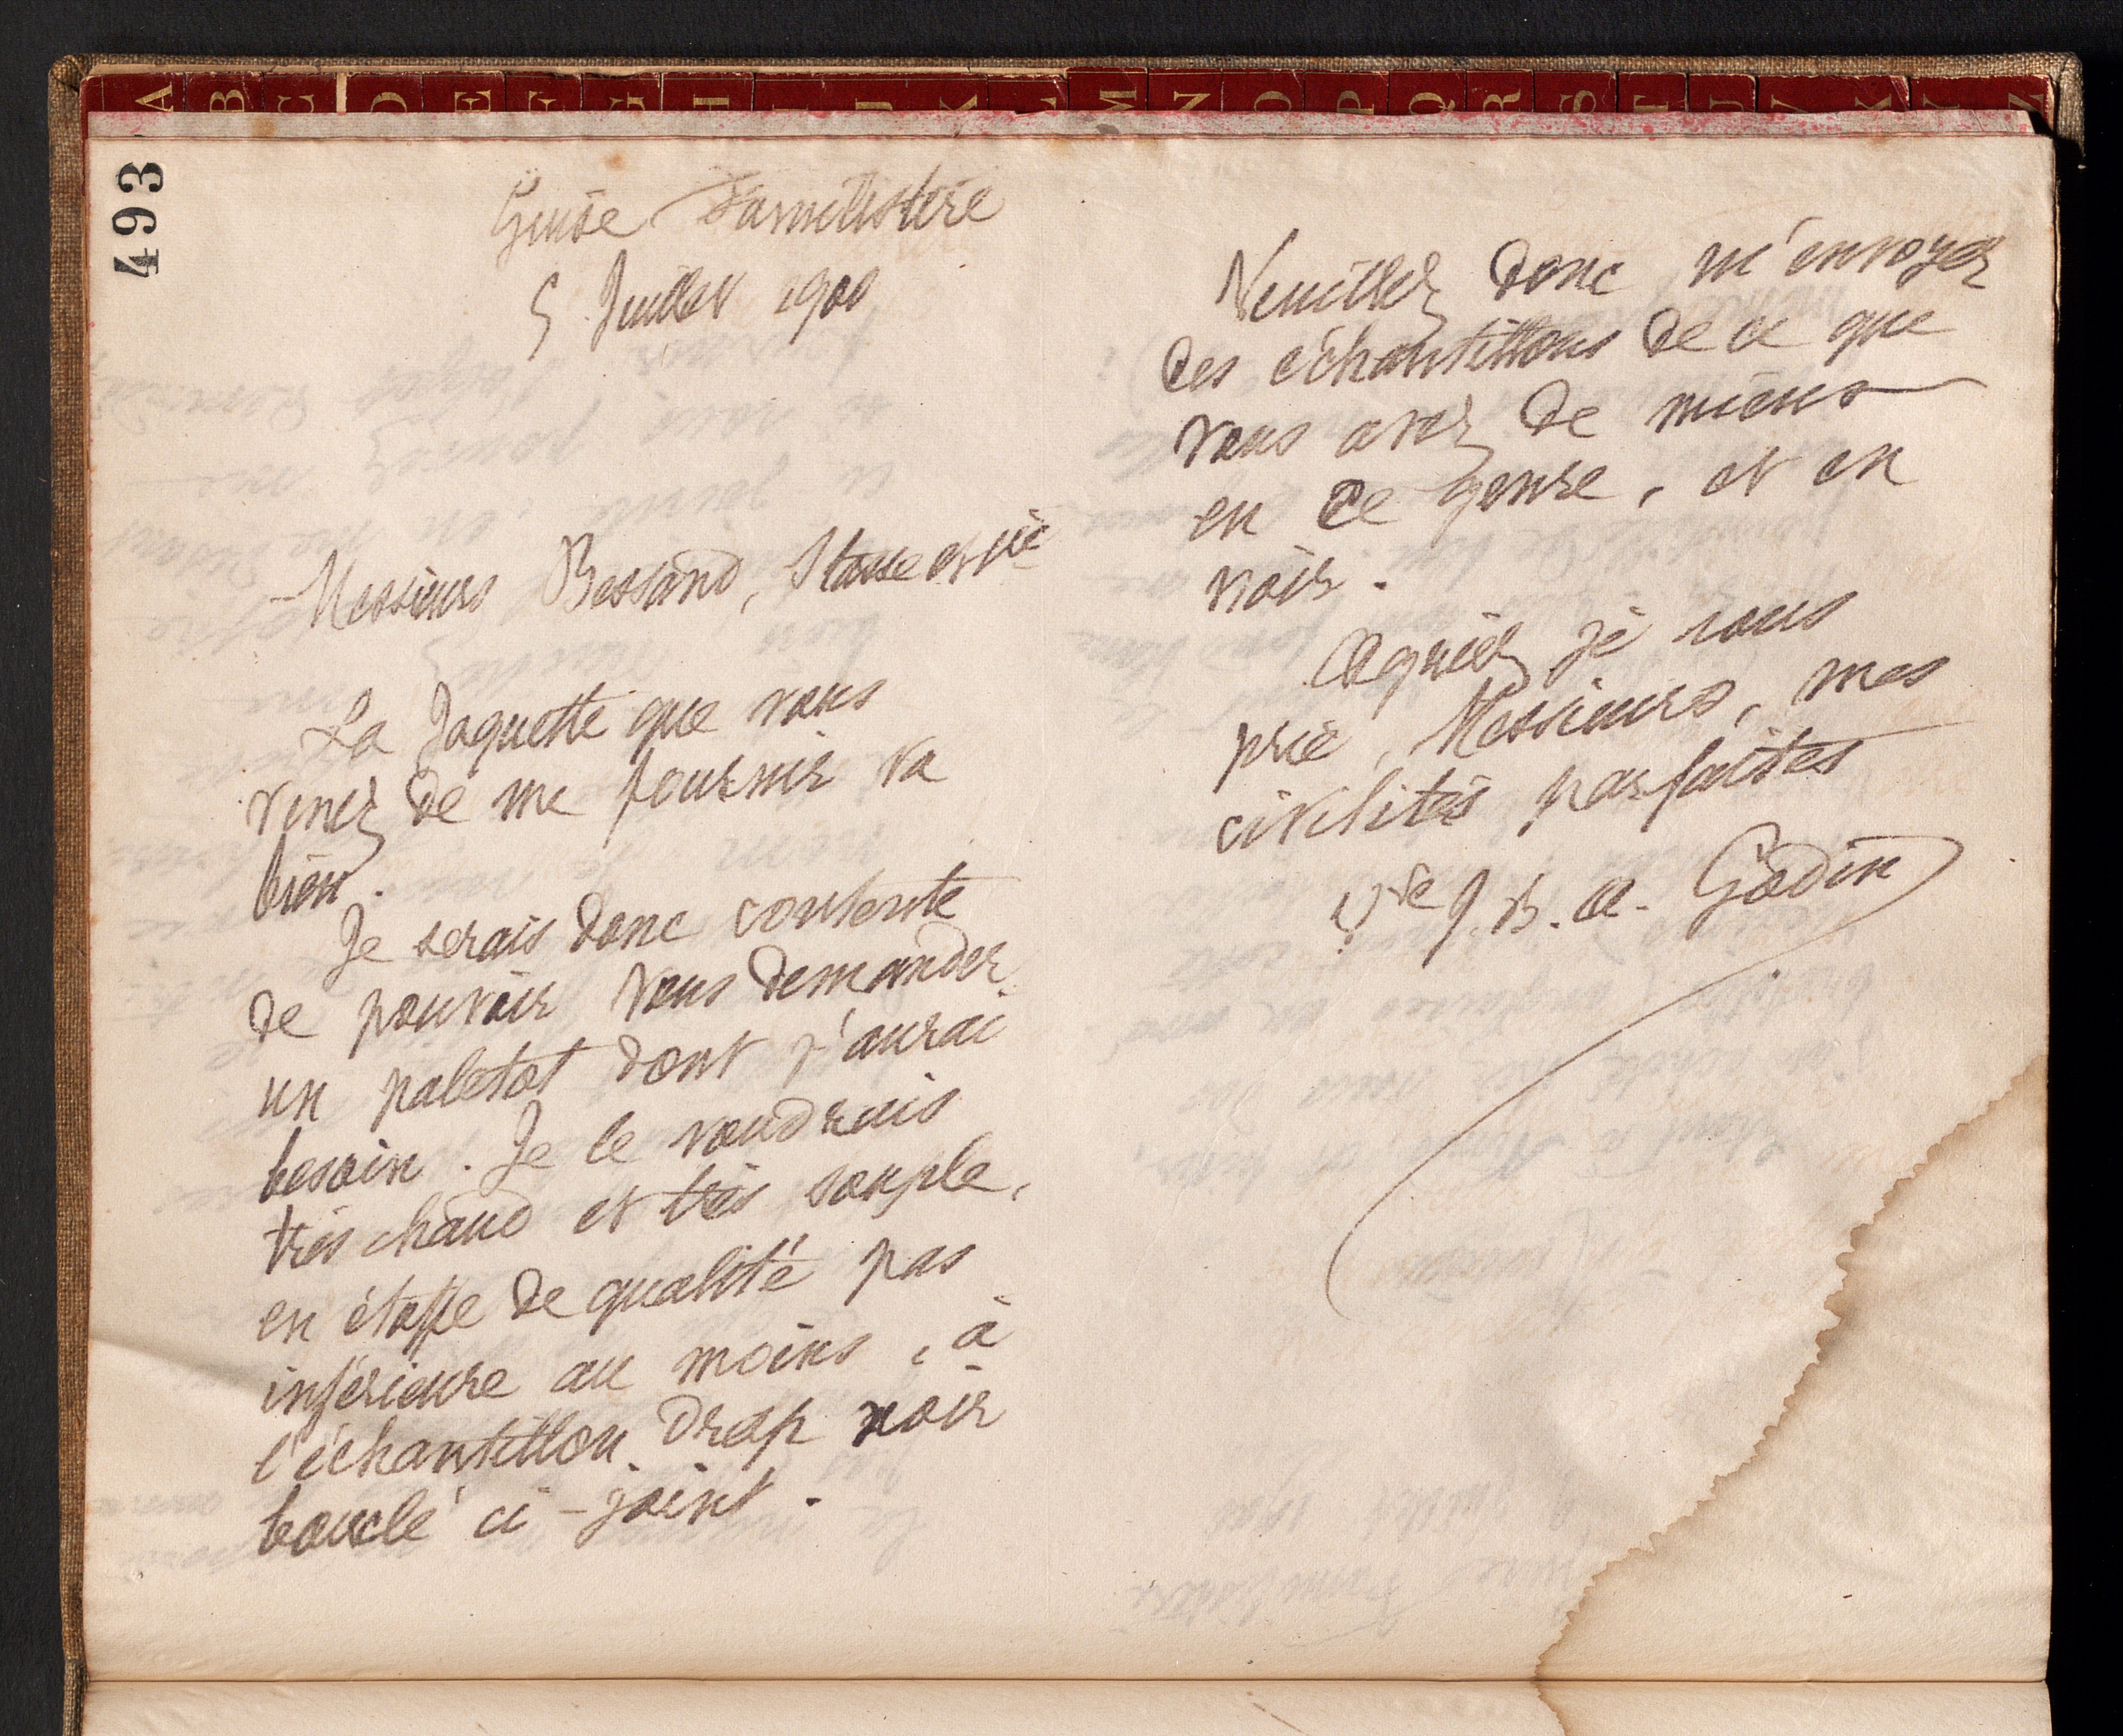 A B C D E F G H I J K L M N O P Q R S T U V X Y Z
493
Guise Familistère
5 Juillet 1900
Messieurs Bessand, Stasse et Cie
La Jaquette que vous
venez de me fournir va
bien.
Je serais donc contente
de pouvoir vous demander
un paletot dont j'aurai
besoin. Je le voudrais
très chaud et très souple,
en étoffe de qualité pas
inférieure au moins, à
l'échantillon drap noir
bouclé ci-joint.
Veuillez donc m'envoyer
des échantillons de ce que
vous avez de mieux
en ce genre, et en
noir.
Agréez je vous
prie, Messieurs, mes
civilités parfaites
Vve J. B. A. Godin